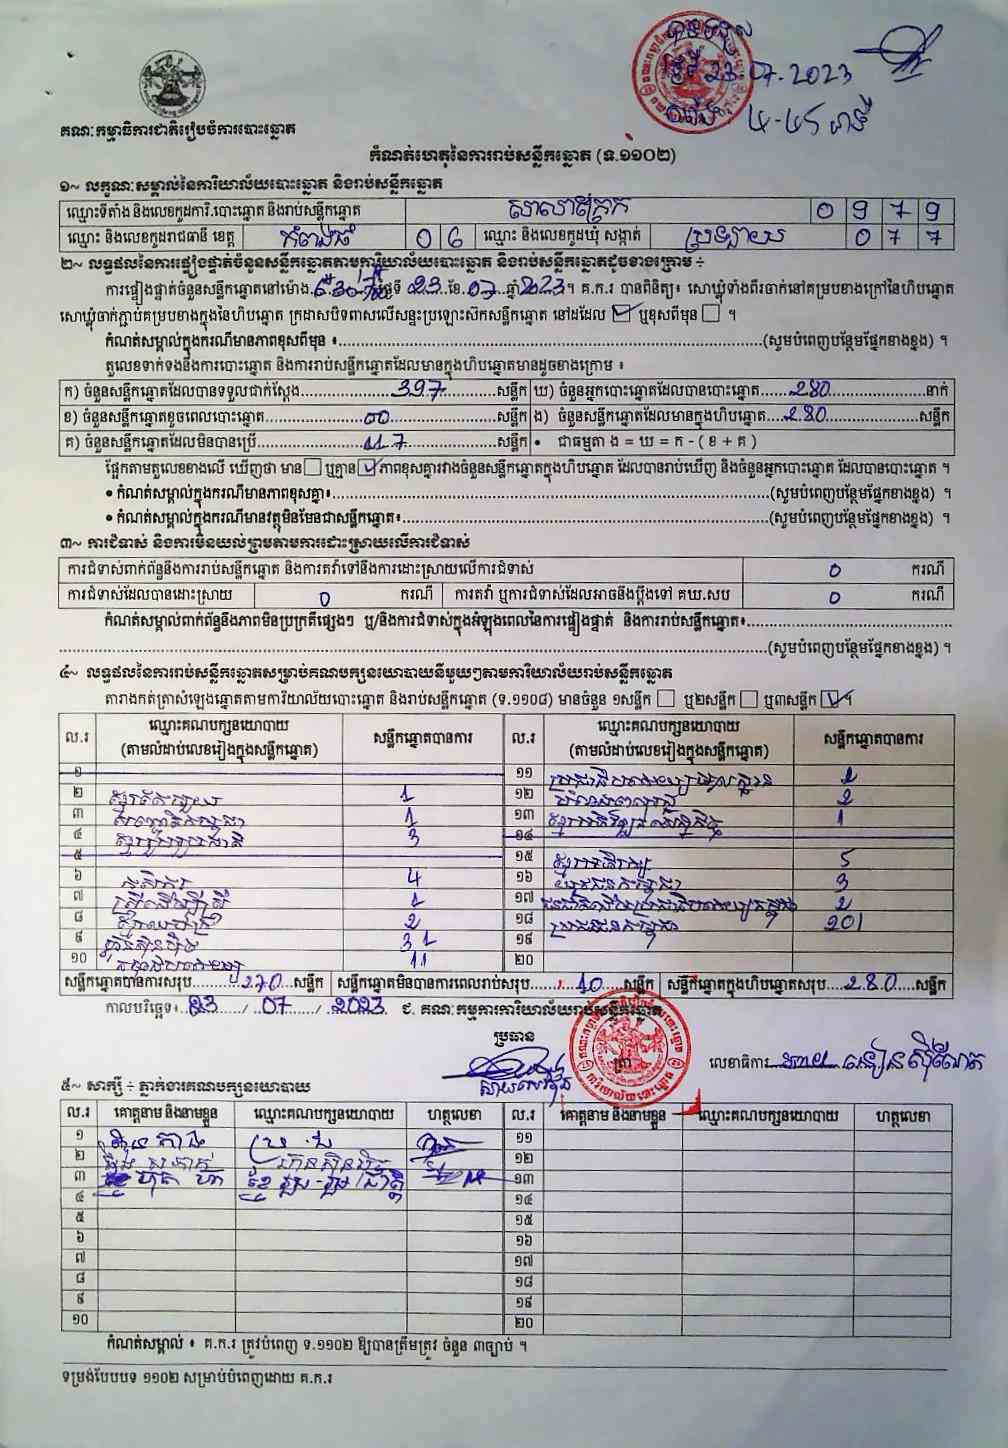 ថ្ងៃទី 23.07.2023
គណៈកម្មាធិការជាតិរៀបចំការបោះឆ្នោត
កំណត់ហេតុនៃការរាប់សន្លឹកឆ្នោត (ទ.១១០២)
១~ លក្ខណៈសម្គាល់នៃការិយាល័យបោះឆ្នោត និងរាប់សន្លឹកឆ្នោត
ឈ្មោះទីតាំង និងលេខកូដការិ.បោះឆ្នោត និងរាប់សន្លឹកឆ្នោត 0 9 7 9
ឈ្មោះ និងលេខកូដរាជធានី ខេត្ត កំពង់ធំ 0 6 ឈ្មោះ និងលេខកូដឃុំ សង្កាត់ 0 7 7
២~ លទ្ធផលនៃការផ្ទៀងផ្ទាត់ចំនួនសន្លឹកឆ្នោតតាមការិយាល័យបោះឆ្នោត និងរាប់សន្លឹកឆ្នោតដូចខាងក្រោម ÷
ការផ្ទៀងផ្ទាត់ចំនួនសន្លឹកឆ្នោតនៅម៉ោង ថ្ងៃទី 23 ខែ 07 ឆ្នាំ 2023 ។ គ.ក.រ បានពិនិត្យ៖ សោឃ្លុំទាំងពីរចាក់នៅគម្របខាងក្រៅនៃហិបឆ្នោត
សោឃ្លុំចាក់ភ្ជាប់គម្របខាងក្នុងនៃហិបឆ្នោត ក្រដាសបិទពាសលើសន្ទះប្រឡោះស៊កសន្លឹកឆ្នោត នៅដដែល ☑ ឬខុសពីមុន ☐ ។
កំណត់សម្គាល់ក្នុងករណីមានភាពខុសពីមុន ៖ (សូមបំពេញបន្ថែមផ្នែកខាងខ្នង) ។
តួលេខទាក់ទងនឹងការបោះឆ្នោត និងការរាប់សន្លឹកឆ្នោតដែលមានក្នុងហិបឆ្នោតមានដូចខាងក្រោម ៖
ក) ចំនួនសន្លឹកឆ្នោតដែលបានទទួលជាក់ស្តែង 397 សន្លឹក ឃ) ចំនួនអ្នកបោះឆ្នោតដែលបានបោះឆ្នោត 280 នាក់
ខ) ចំនួនសន្លឹកឆ្នោតខូចពេលបោះឆ្នោត 00 សន្លឹក ង) ចំនួនសន្លឹកឆ្នោតដែលមានក្នុងហិបឆ្នោត 280 សន្លឹក
គ) ចំនួនសន្លឹកឆ្នោតដែលមិនបានប្រើ 117 សន្លឹក • ជាធម្មតា ង = ឃ = ក - ( ខ + គ )
ផ្អែកតាមតួលេខខាងលើ ឃើញថា មាន ☐ ឬគ្មាន ☑ ភាពខុសគ្នារវាងចំនួនសន្លឹកឆ្នោតក្នុងហិបឆ្នោត ដែលបានរាប់ឃើញ និងចំនួនអ្នកបោះឆ្នោត ដែលបានបោះឆ្នោត ។
• កំណត់សម្គាល់ក្នុងករណីមានភាពខុសគ្នា៖ (សូមបំពេញបន្ថែមផ្នែកខាងខ្នង) ។
• កំណត់សម្គាល់ក្នុងករណីមានវត្ថុមិនមែនជាសន្លឹកឆ្នោត៖ (សូមបំពេញបន្ថែមផ្នែកខាងខ្នង) ។
៣~ ការជំទាស់ និងការមិនយល់ព្រមតាមការដោះស្រាយលើការជំទាស់
ការជំទាស់ពាក់ព័ន្ធនឹងការរាប់សន្លឹកឆ្នោត និងការតវ៉ាទៅនឹងការដោះស្រាយលើការជំទាស់ 0 ករណី
ការជំទាស់ដែលបានដោះស្រាយ 0 ករណី ការតវ៉ា ឬការជំទាស់ដែលអាចនឹងប្តឹងទៅ គឃ.សប 0 ករណី
កំណត់សម្គាល់ពាក់ព័ន្ធនឹងភាពមិនប្រក្រតីផ្សេងៗ ឬ/និងការជំទាស់ក្នុងអំឡុងពេលនៃការផ្ទៀងផ្ទាត់ និងការរាប់សន្លឹកឆ្នោត៖
(សូមបំពេញបន្ថែមផ្នែកខាងខ្នង) ។
៤~ លទ្ធផលនៃការរាប់សន្លឹកឆ្នោតសម្រាប់គណបក្សនយោបាយនីមួយៗតាមការិយាល័យរាប់សន្លឹកឆ្នោត
តារាងកត់ត្រាសំឡេងឆ្នោតតាមការិយាល័យបោះឆ្នោត និងរាប់សន្លឹកឆ្នោត (ទ.១១០៨) មានចំនួន ១សន្លឹក ☐ ឬ២សន្លឹក ☐ ឬ៣សន្លឹក ☑ ។
ល.រ ឈ្មោះគណបក្សនយោបាយ (តាមលំដាប់លេខរៀងក្នុងសន្លឹកឆ្នោត) សន្លឹកឆ្នោតបានការ ល.រ ឈ្មោះគណបក្សនយោបាយ (តាមលំដាប់លេខរៀងក្នុងសន្លឹកឆ្នោត) សន្លឹកឆ្នោតបានការ
១ ១១
២ 1 ១២ 2
៣ 1 ១៣ 1
៤ 3 ១៤
៥ ១៥ 5
៦ កសិករ 4 ១៦ យុវជនកម្ពុជា 3
៧ 1 ១៧ 2
៨ 2 ១៨ ប្រជាជនកម្ពុជា 201
៩ ហ៊្វុនស៊ិនប៉ិច 31 ១៩
១០ 11 ២០
សន្លឹកឆ្នោតបានការសរុប 270 សន្លឹក សន្លឹកឆ្នោតមិនបានការពេលរាប់សរុប 10 សន្លឹក សន្លឹកឆ្នោតក្នុងហិបឆ្នោតសរុប 280 សន្លឹក
កាលបរិច្ឆេទ៖ 23 / 07 / 2023 ជ. គណៈកម្មការការិយាល័យរាប់សន្លឹកឆ្នោត
ប្រធាន ត្រា លេខាធិការ
៥~ សាក្សី ÷ ភ្នាក់ងារគណបក្សនយោបាយ
ល.រ គោត្តនាម និងនាមខ្លួន ឈ្មោះគណបក្សនយោបាយ ហត្ថលេខា ល.រ គោត្តនាម និងនាមខ្លួន ឈ្មោះគណបក្សនយោបាយ ហត្ថលេខា
១ ១១
២ ហ៊្វុនស៊ិនប៉ិច ១២
៣ ១៣
៤ ១៤
៥ ១៥
៦ ១៦
៧ ១៧
៨ ១៨
៩ ១៩
១០ ២០
កំណត់សម្គាល់ ៖ គ.ក.រ ត្រូវបំពេញ ទ.១១០២ ឱ្យបានត្រឹមត្រូវ ចំនួន ៣ច្បាប់ ។
ទម្រង់បែបបទ ១១០២ សម្រាប់បំពេញដោយ គ.ក.រ